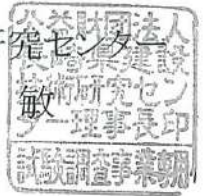 究センター
敏
公益財団法人
県建設
技術研究セン
ター理事長印
試験調査事業専用